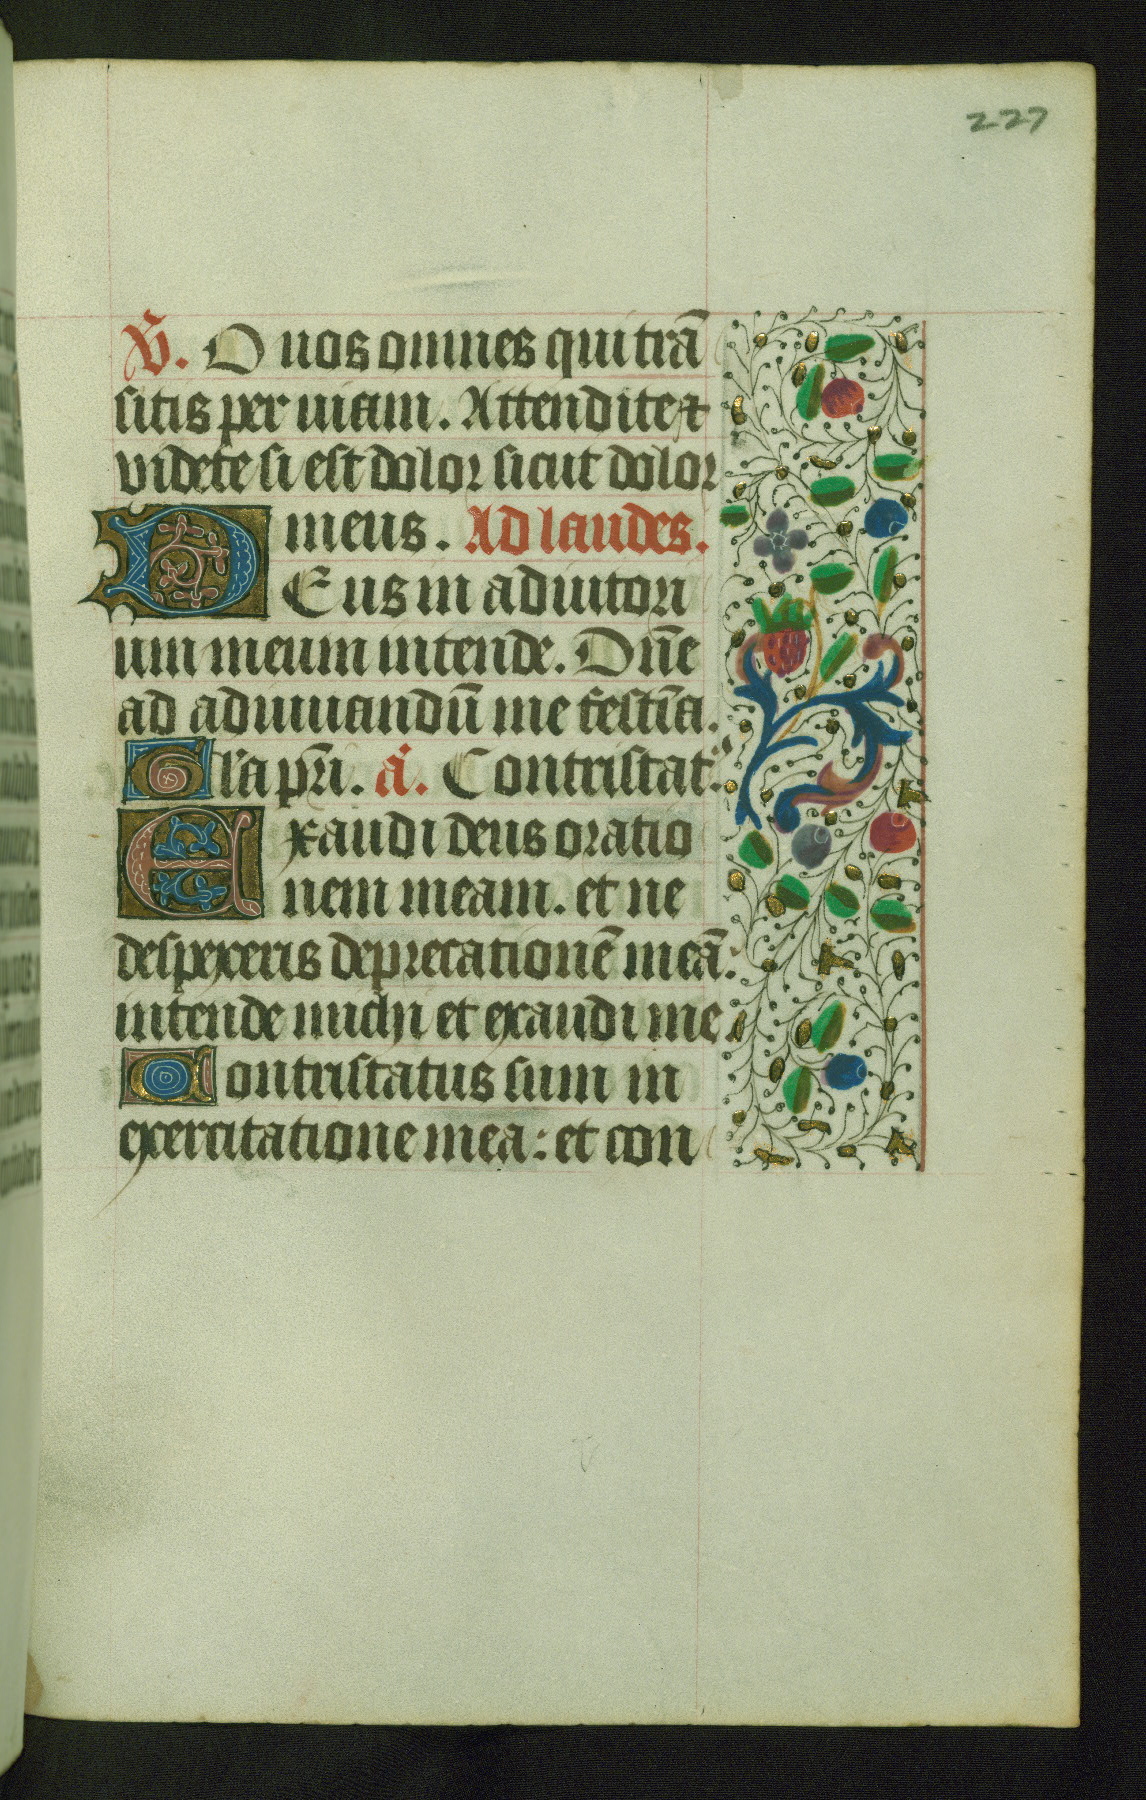 227
V̄. O uos omnes qui trā
sitis per uiam. Attendite et
videte si est dolor sicut dolor
meus. Ad laudes.
DEus in adiutori
um meum intende. Dn̄e
ad adiuuandū me festīa.
Gl'a pr̄i. a̅. Contristat⁹.
Exaudi deus oratio
nem meam. et ne
despexeris deprecationē meā:
intende michi et exaudi me
Contristatus sum in
exercitatione mea: et con